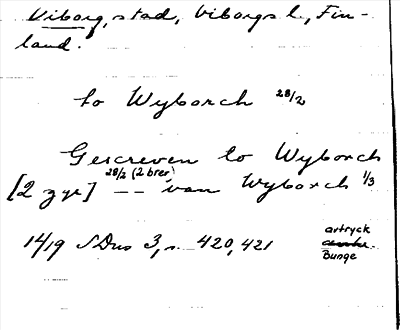 Viborg, stad, Viborgs l., Fin-
land.
to Wyborch 28/2
Gescreven to Wyborch
28/2 (2 brev)
[2 ggr] -- van Wyborch 1/3
14/19 SDns 3, s. 420, 421
avtryck
Bunge